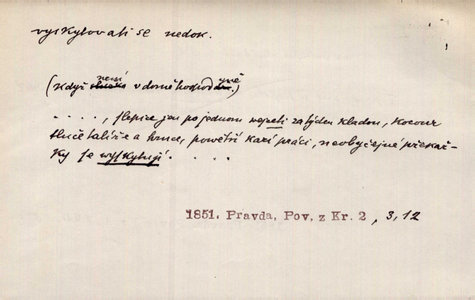 vyskytovati se nedok.
(když není v domě hospodyně.)
. . . . , slepice jen po jednom vejceti za týden kladou, kocour
tluče talíře a hrnce, powětří kazí práci, neobyčejné překáž-
ky se wyskytují . . . .
1851. Pravda, Pov. z Kr. 2, 3, 12